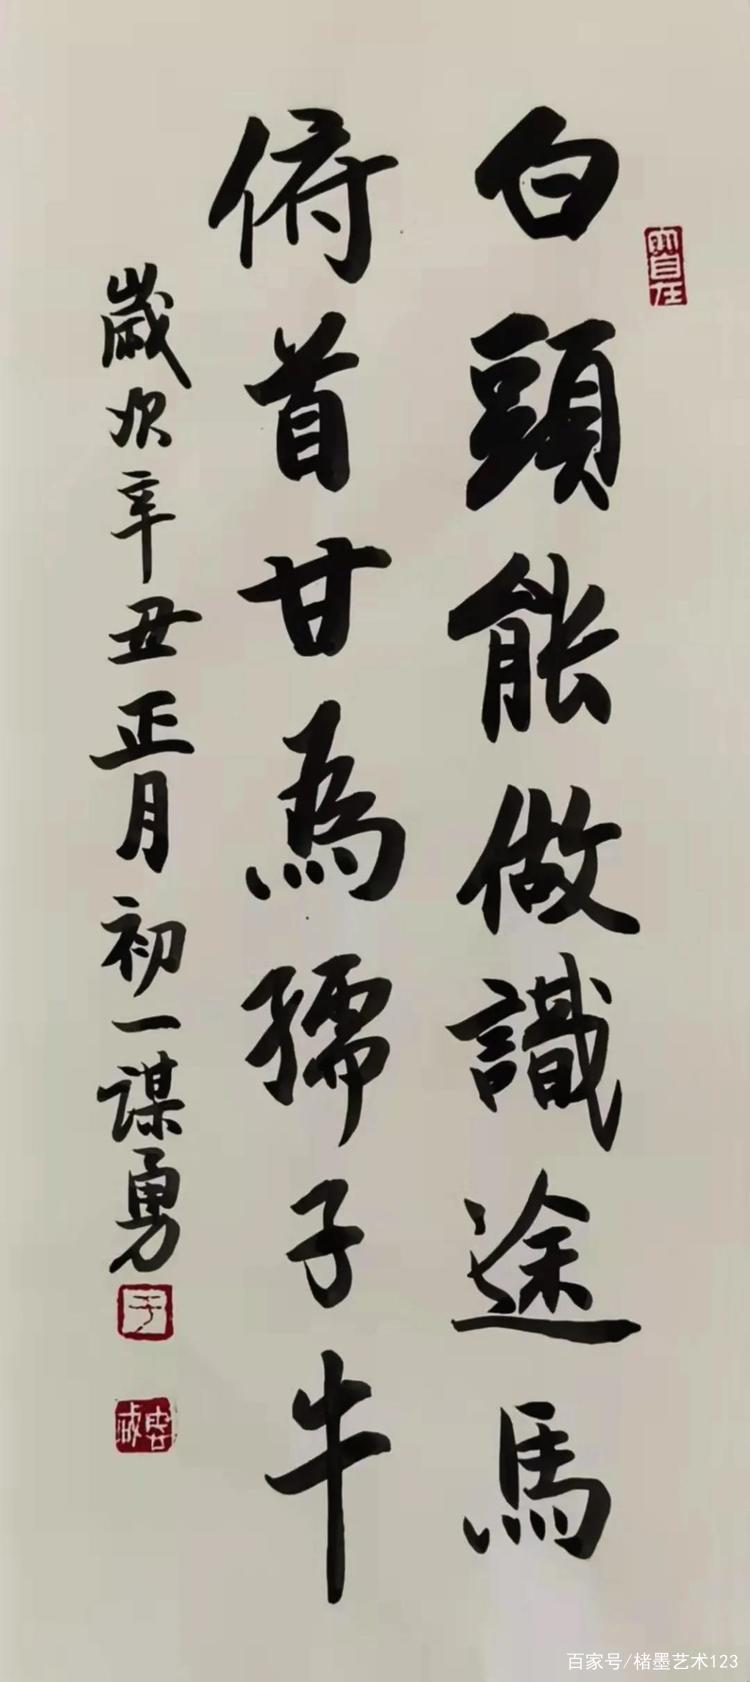 白頭能做識途馬
俯首甘為孺子牛
歲次辛丑正月初一谋勇
百家号/楮墨艺术123